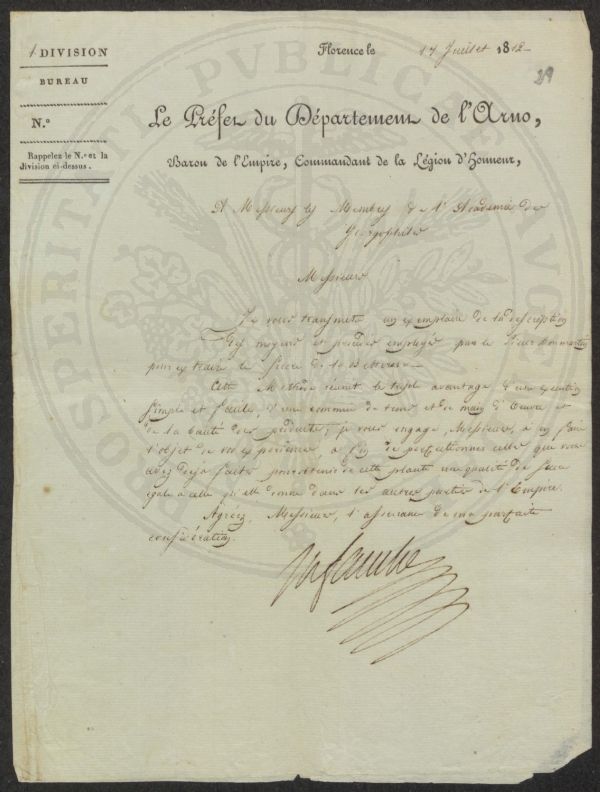 1 DIVISION
BUREAU
N.º
Rappelez le N.º et la
division ci-dessus.
Florence le 17 Juillet 1812
29
Le Préfet du Département de l'Arno,
Baron de l'Empire, Commandant de la Légion d'Honneur,
A Messieurs les Membres de l'Académie des
Georgofiles
Messieurs
Je vous transmets un exemplaire de la description
des moyens et procédés employés par le Sieur
pour extraire le Sucre de la Betterave
Cette Methode réunit le triple avantage d'une execution
simple et facile, d'une de tems et de main d'Oeuvre et
de la bauté des produits; je vous engage, Messieurs, à en faire
l'objet de vos experiences, à fin de perfectionner celles que vous
avez deja faites pour obtenir de cette plante une qualité de Sucre
egale à celle qu'elle donne dans les autres parties de l'Empire.
Agréez, Messieurs, l'assurance de ma parfaite
consideration.
PROSPERITATI PUBLICAE